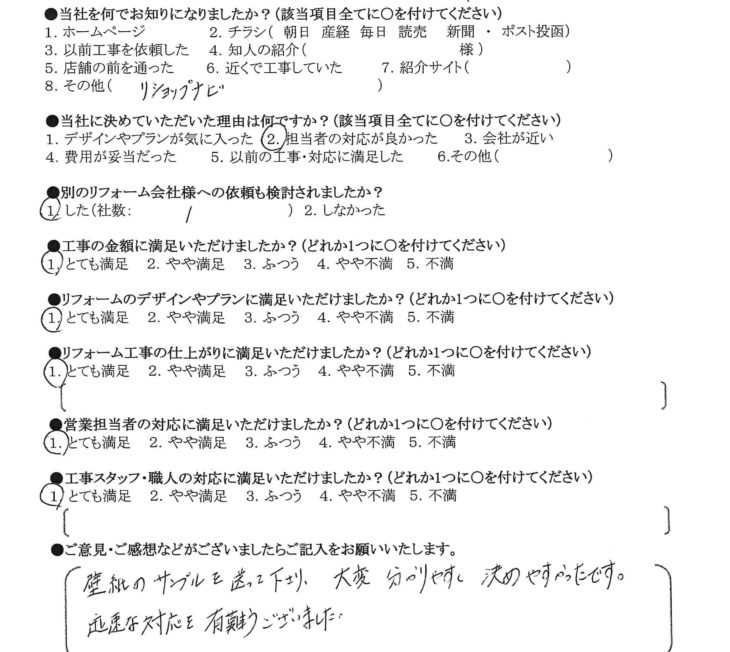 ●当社を何でお知りになりましたか？(該当項目全てに〇を付けてください)
1. ホームページ 2. チラシ( 朝日 産経 毎日 読売 新聞 ・ ポスト投函)
3. 以前工事を依頼した 4. 知人の紹介( 様 )
5. 店舗の前を通った 6. 近くで工事していた 7. 紹介サイト( )
8. その他( リショップナビ )
●当社に決めていただいた理由は何ですか？(該当項目全てに〇を付けてください)
1. デザインやプランが気に入った 2. 担当者の対応が良かった 3. 会社が近い
4. 費用が妥当だった 5. 以前の工事・対応に満足した 6.その他( )
●別のリフォーム会社様への依頼も検討されましたか？
1. した(社数: 1 ) 2. しなかった
●工事の金額に満足いただけましたか？(どれか1つに〇を付けてください)
1. とても満足 2. やや満足 3. ふつう 4. やや不満 5. 不満
●リフォームのデザインやプランに満足いただけましたか？(どれか1つに〇を付けてください)
1. とても満足 2. やや満足 3. ふつう 4. やや不満 5. 不満
●リフォーム工事の仕上がりに満足いただけましたか？(どれか1つに〇を付けてください)
1. とても満足 2. やや満足 3. ふつう 4. やや不満 5. 不満
●営業担当者の対応に満足いただけましたか？(どれか1つに〇を付けてください)
1. とても満足 2. やや満足 3. ふつう 4. やや不満 5. 不満
●工事スタッフ・職人の対応に満足いただけましたか？(どれか1つに〇を付けてください)
1. とても満足 2. やや満足 3. ふつう 4. やや不満 5. 不満
●ご意見・ご感想などがございましたらご記入をお願いいたします。
壁紙のサンプルを送って下さり、大変 分かりやすく 決めやすかったです。
迅速な対応を有難うございました。